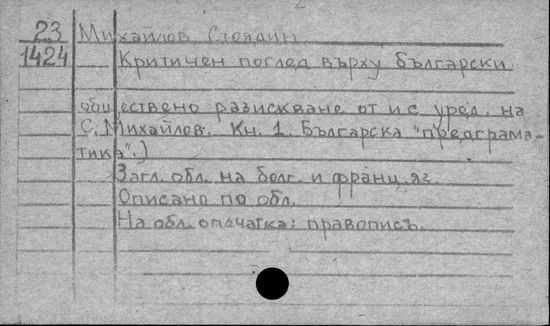 23 Михайлов Стоядин
1424 Критичен поглед върху български
обществено разискване от и с уред. на
С. Михайлов. Кн. 1. Българска "предграма-
тика".)
Загл. обл. на болг. и франц. яз.
Описано по обл.
На обл. опечатка: правописъ.